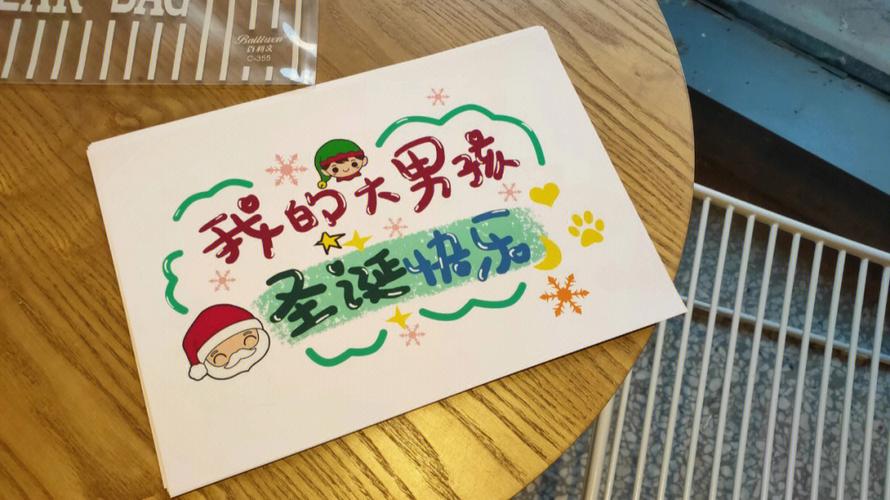 EAR BAG
百利文
C-355
我的大男孩
圣诞快乐